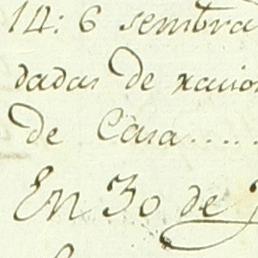 14: 6 sembra
dadas de racio
de Casa.....
En 30 de